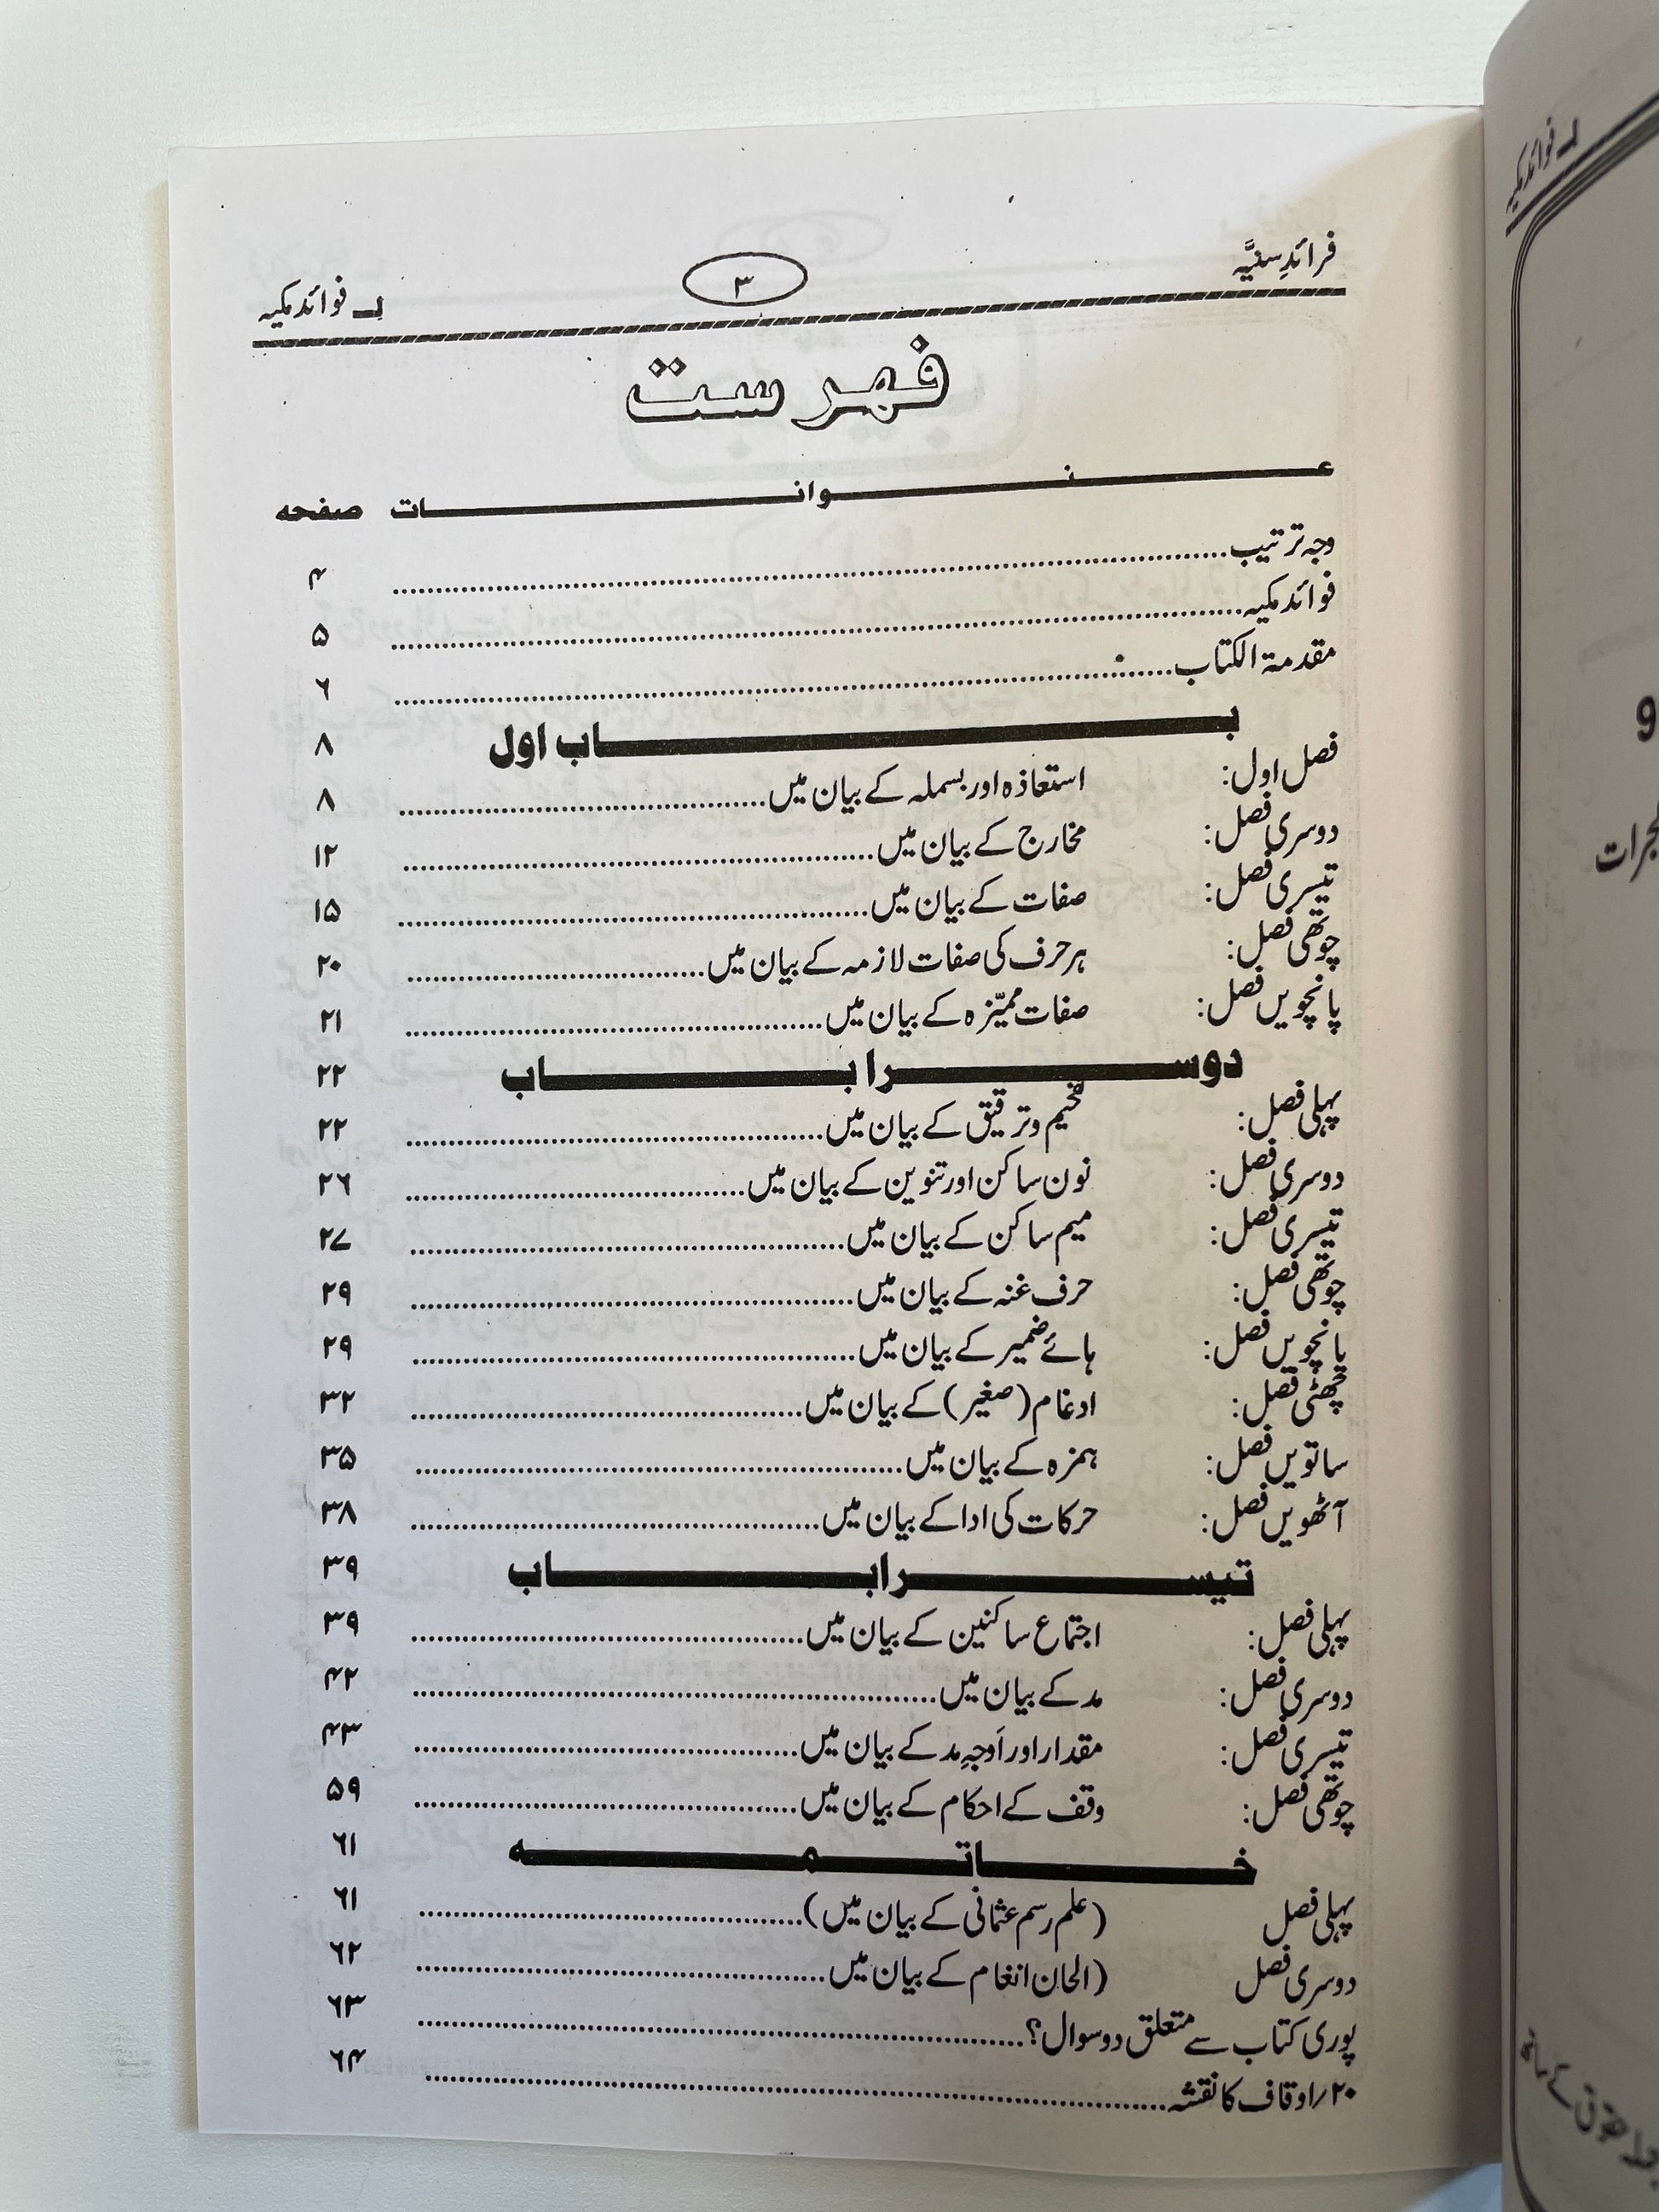 فرائدِ سنیَّہ ۳ بـ فوائد مکیہ
فہرست
عنوانات صفحہ
وجہ ترتیب ........ ۴
فوائد مکیہ ........ ۵
مقدمۃ الکتاب ........ ۶
باب اول ۸
فصل اول: استعاذہ اور بسملہ کے بیان میں ........ ۸
دوسری فصل: مخارج کے بیان میں ........ ۱۲
تیسری فصل: صفات کے بیان میں ........ ۱۵
چوتھی فصل: ہر حرف کی صفات لازمہ کے بیان میں ........ ۲۰
پانچویں فصل: صفات ممیّزہ کے بیان میں ........ ۲۱
دوسرا باب ۲۲
پہلی فصل: تفخیم و ترقیق کے بیان میں ........ ۲۲
دوسری فصل: نون ساکن اور تنوین کے بیان میں ........ ۲۶
تیسری فصل: میم ساکن کے بیان میں ........ ۲۷
چوتھی فصل: حرف غنہ کے بیان میں ........ ۲۹
پانچویں فصل: ہائے ضمیر کے بیان میں ........ ۲۹
چھٹی فصل: ادغام (صغیر) کے بیان میں ........ ۳۲
ساتویں فصل: ہمزہ کے بیان میں ........ ۳۵
آٹھویں فصل: حرکات کی ادا کے بیان میں ........ ۳۸
تیسرا باب ۳۹
پہلی فصل: اجتماع ساکنین کے بیان میں ........ ۳۹
دوسری فصل: مد کے بیان میں ........ ۴۲
تیسری فصل: مقدار اور اَوجہِ مد کے بیان میں ........ ۴۳
چوتھی فصل: وقف کے احکام کے بیان میں ........ ۵۹
خاتمہ ۶۱
پہلی فصل (علم رسم عثمانی کے بیان میں) ........ ۶۱
دوسری فصل (الحان انغام کے بیان میں ........ ۶۲
پوری کتاب سے متعلق دو سوال؟ ........ ۶۳
۲۰/اوقاف کا نقشہ ........ ۶۴
بـ فوائد مکیہ
و